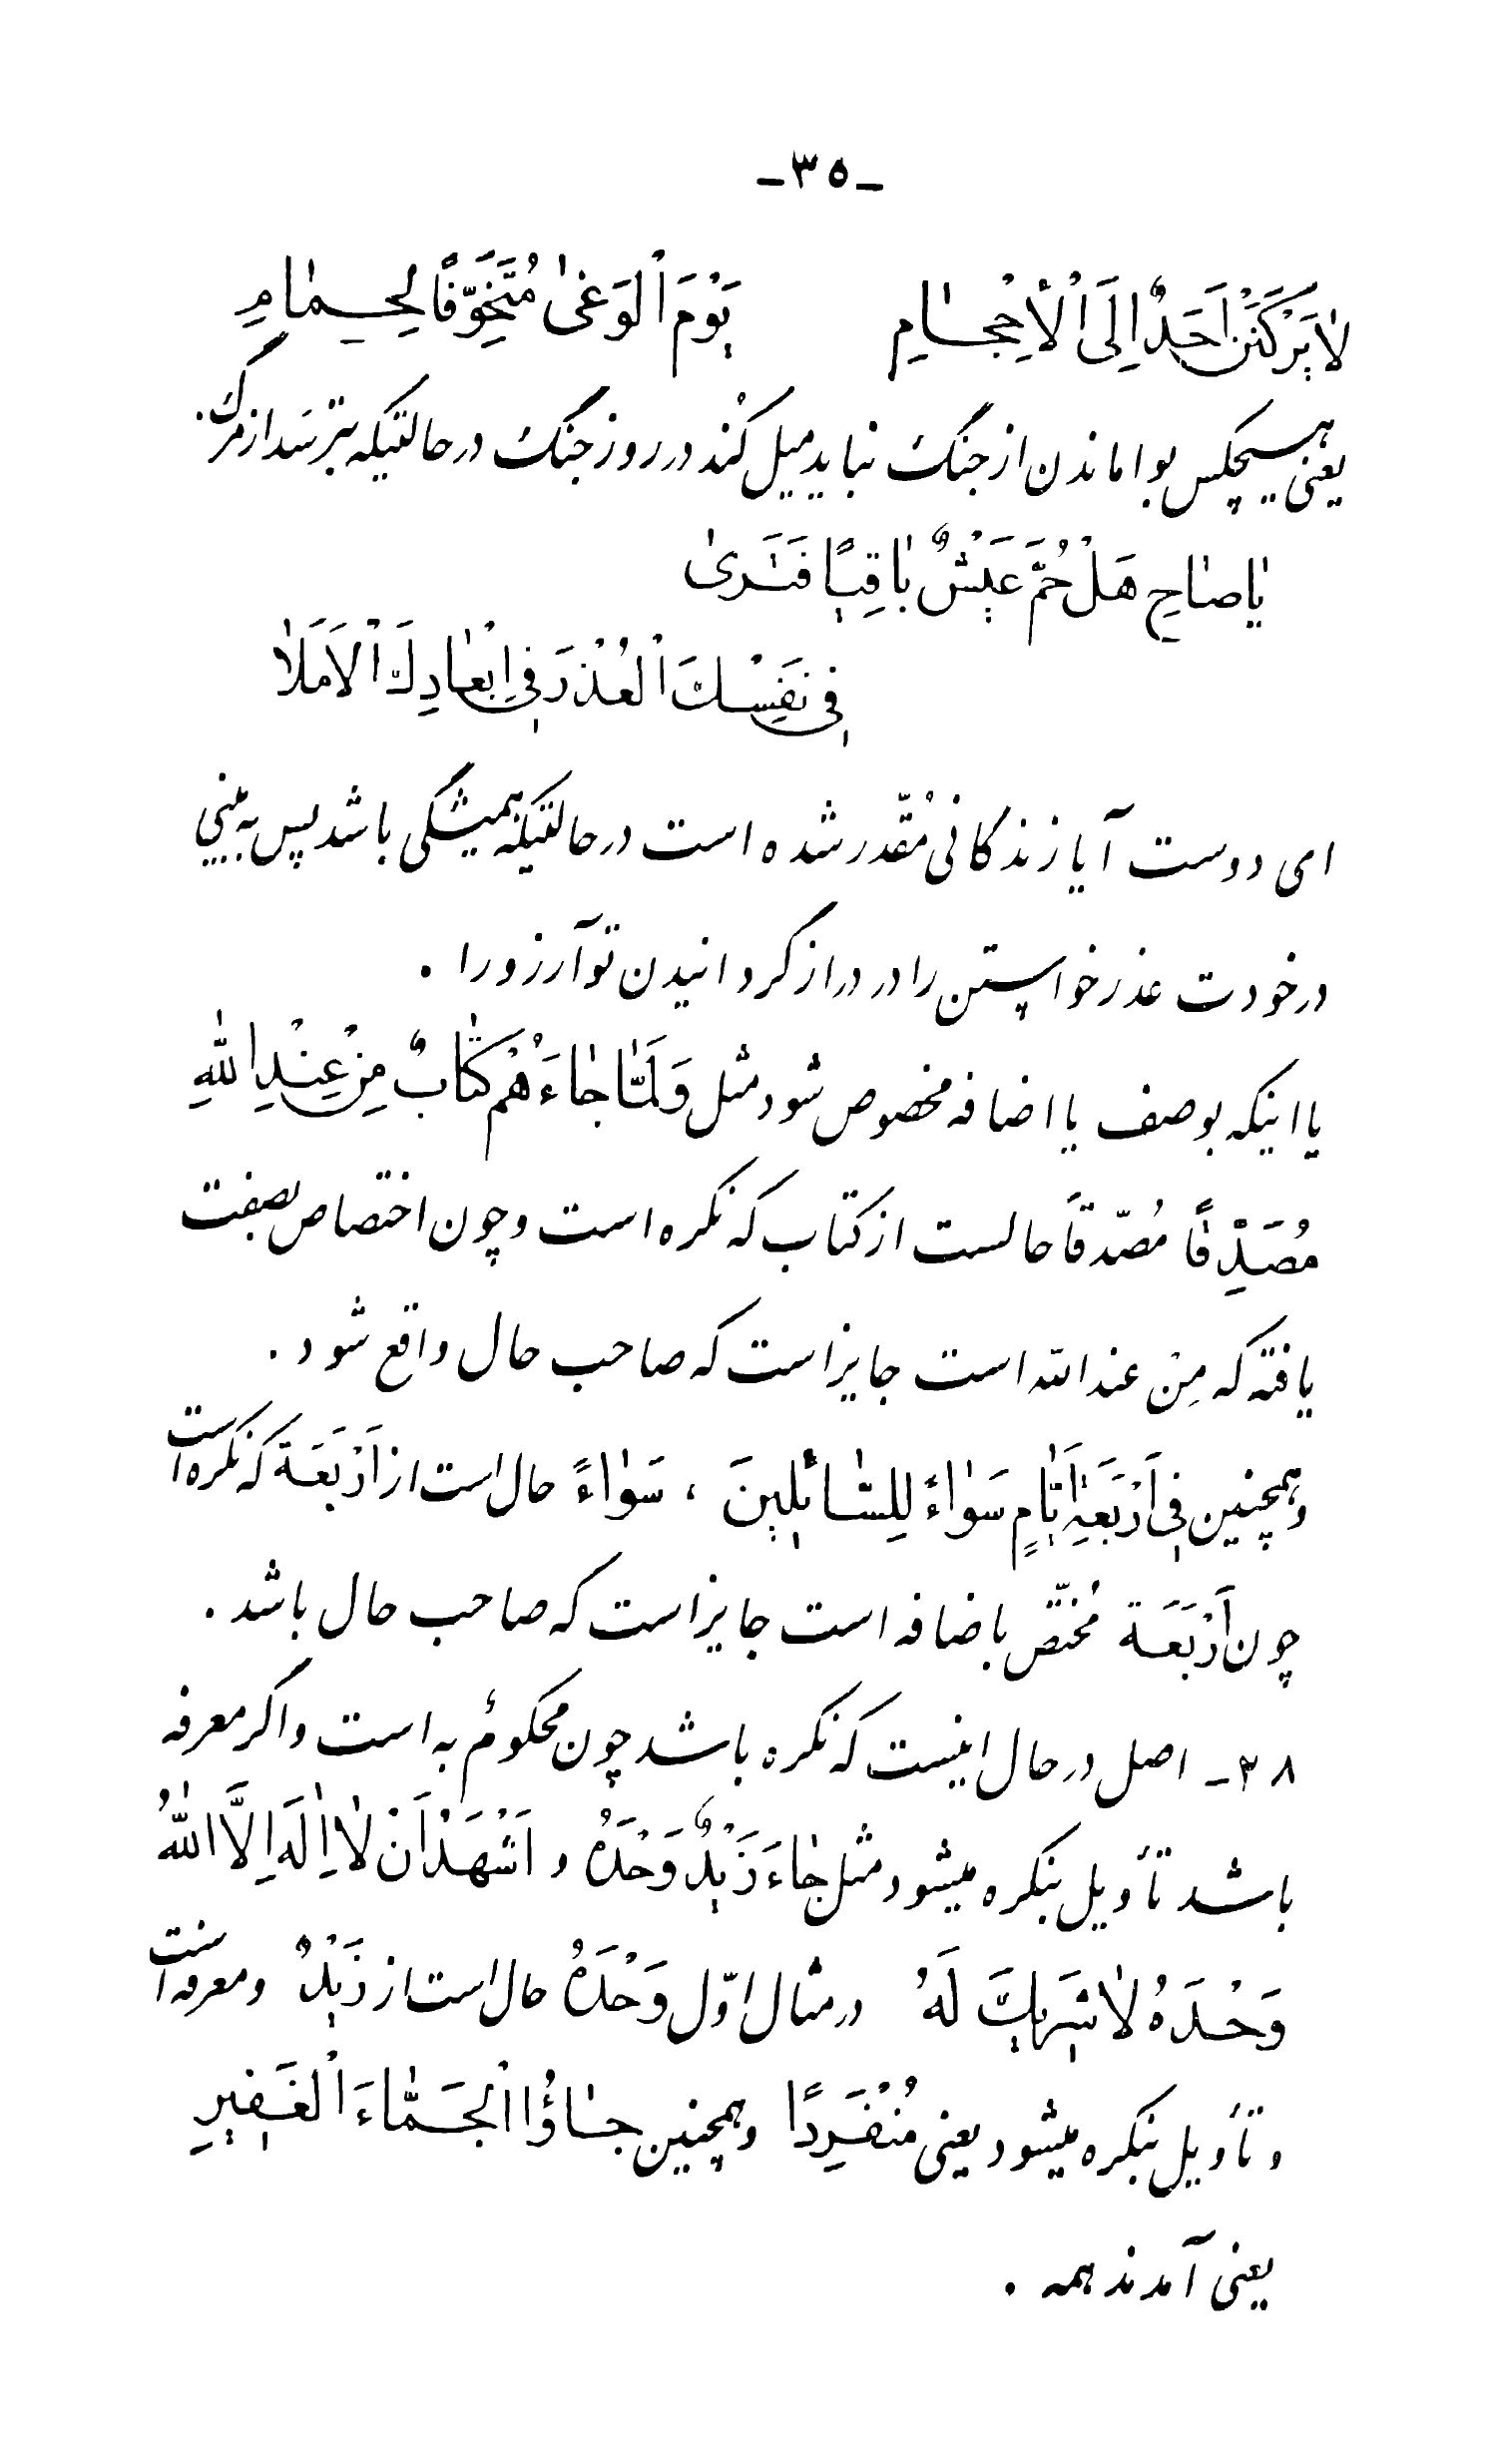 -۳۵-
لاٰیَرْکَنَنْ اَحَدٌ اِلَی اْلْاِحْجٰامِ یَوْمَ اْلوَغیٰ مُتَخَوِّفًا لِحِمٰامِ
یعنی هیچکس بواماندن از جنگ نباید میل کُند در روز جنگ در حالتیکه بترسد از مرگ.
یٰاصٰاحِ هَلْ حُمَّ عَیْشٌ بٰاقِیًا فَتَریٰ
فی نَفْسِکَ اْلعُذْرَ فی اِبْعٰادِکَ اْلاَمَلاٰ
ای دوست آیا زندکانی مُقّدر شده است در حالتیکه همیشگی باشد پس به بینی
در خودت عذر خواستن را در دراز گردانیدن تو آرزو را .
یا اینکه بوصف یا اضافه مخصوص شود مثل وَلَمّٰا جٰاءَهُمْ کِتٰابٌ مِنْ عِنْدِ اللّٰهِ
مُصَدِّقًا مُصدّقاً حالست از کتاب که نکره است و چون اختصاص بصفت
یافته که مِن عند الله است جایز است که صاحب حال واقع شود .
و همچنین فی اَرْبَعَةِ اَیّٰامٍ سَوٰاءً لِلسّٰائلینَ ، سَوٰاءً حال است از اَرْبَعَة که نکره است
چون اَرْبَعَة مُختّص باضافه است جایز است که صاحب حال باشد .
۳۸- اصل در حال اینست که نکره باشد چون محکومٌ به است و اگر معرفه
باشد تأویل بنکره میشود مثل جٰاءَ زَیْدٌ وَحْدَهُ و اَشْهَدُ اَنْ لاٰ اِلٰهَ اِلاَّ اللّٰهُ
وَحْدَهُ لاٰ شَریکَ لَهُ در مثال اوّل وَحْدَهُ حال است از زَیْدٌ و معرفه است
و تأویل بنکره میشود یعنی مُنْفَرِدًا و همچنین جٰاؤُا اْلجَمّٰاءَ اْلغَفیرِ
یعنی آمدند همه .